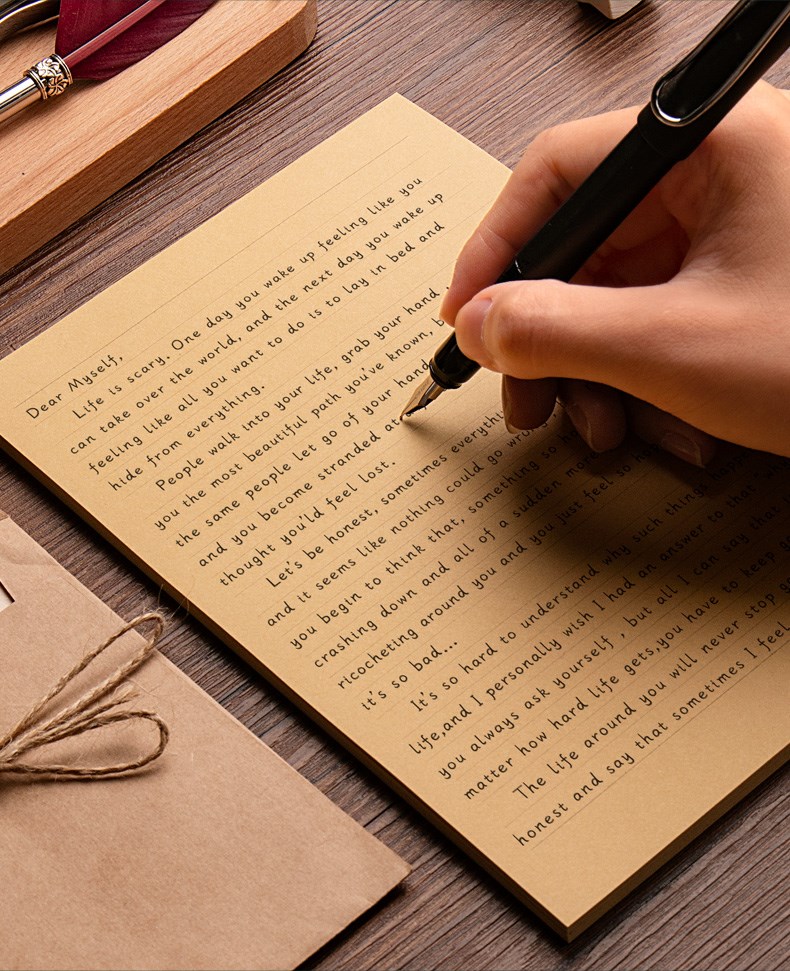 Dear Myself,
Life is scary. One day you wake up feeling like you
can take over the world, and the next day you wake up
feeling like all you want to do is to lay in bed and
hide from everything.
People walk into your life, grab your hand
you the most beautiful path you've known,
the same people let go of your hand
and you become stranded
thought you'ld feel lost.
Let's be honest, sometimes
and it seems like nothing could go
you begin to think that, something so
crashing down and all of a sudden
ricocheting around you and you just feel so
it's so bad...
It's so hard to understand why such things
life,and I personally wish I had an answer to that
you always ask yourself , but all I can say that
matter how hard life gets,you have to keep
The life around you will never stop
honest and say that sometimes I feel